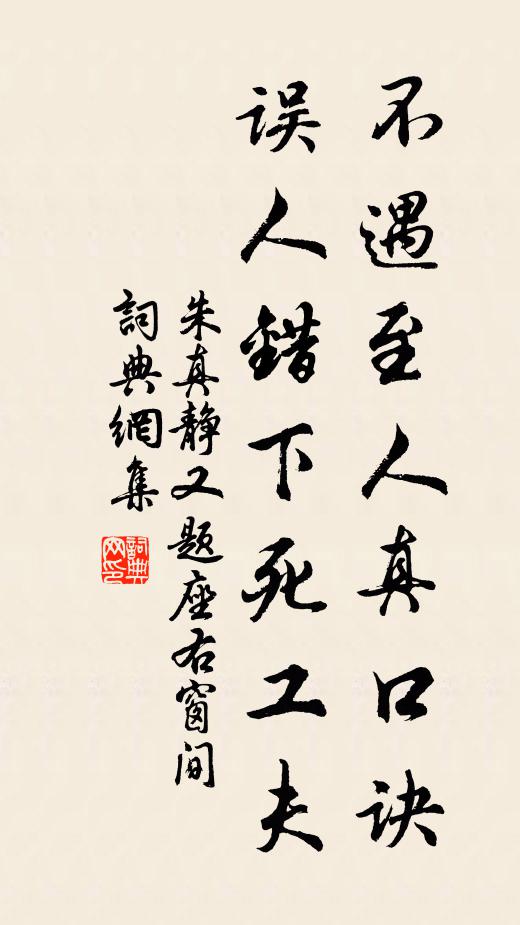 不遇至人真口诀
误人錯下死工夫
朱真静又题座右窗间
詞典網集
詞典网印